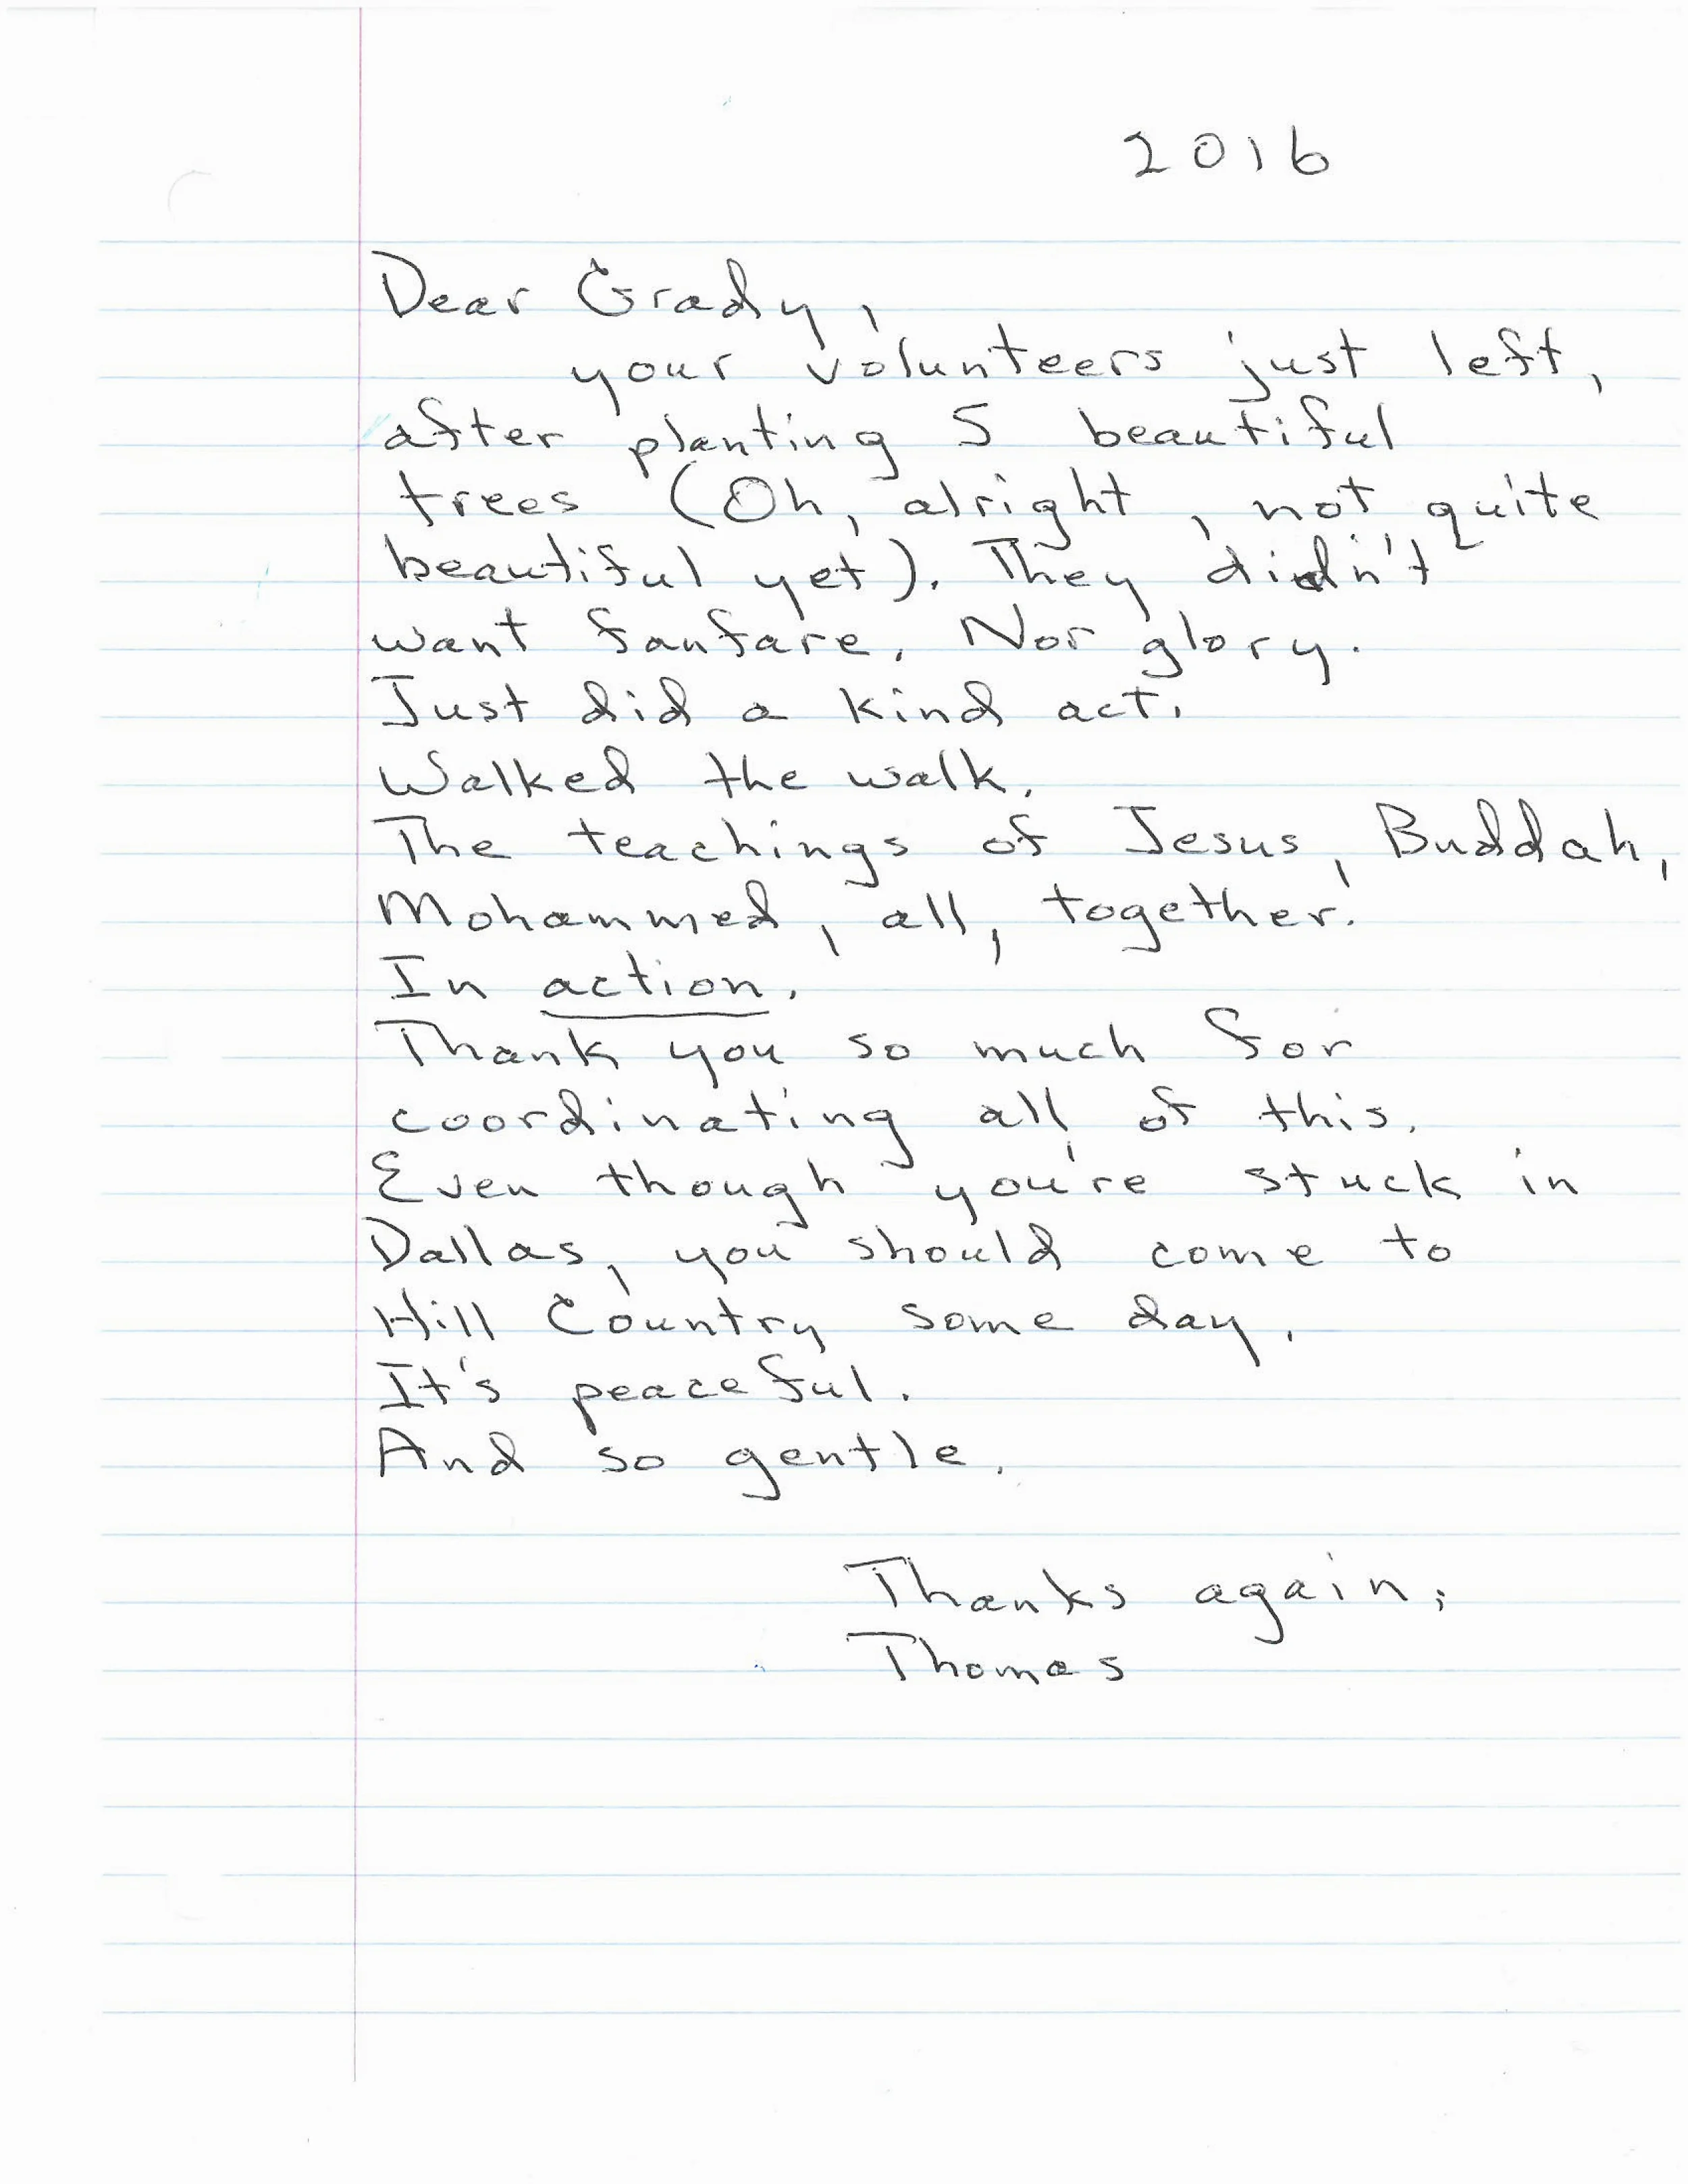 2016
Dear Grady,
your volunteers just left,
after planting 5 beautiful
trees (Oh, alright, not quite
beautiful yet). They didn't
want fanfare. Nor glory.
Just did a kind act.
Walked the walk.
The teachings of Jesus, Buddah,
Mohammed, all, together.
In action.
Thank you so much for
coordinating all of this.
Even though you're stuck in
Dallas, you should come to
Hill Country some day.
It's peaceful.
And so gentle.
Thanks again,
Thomas